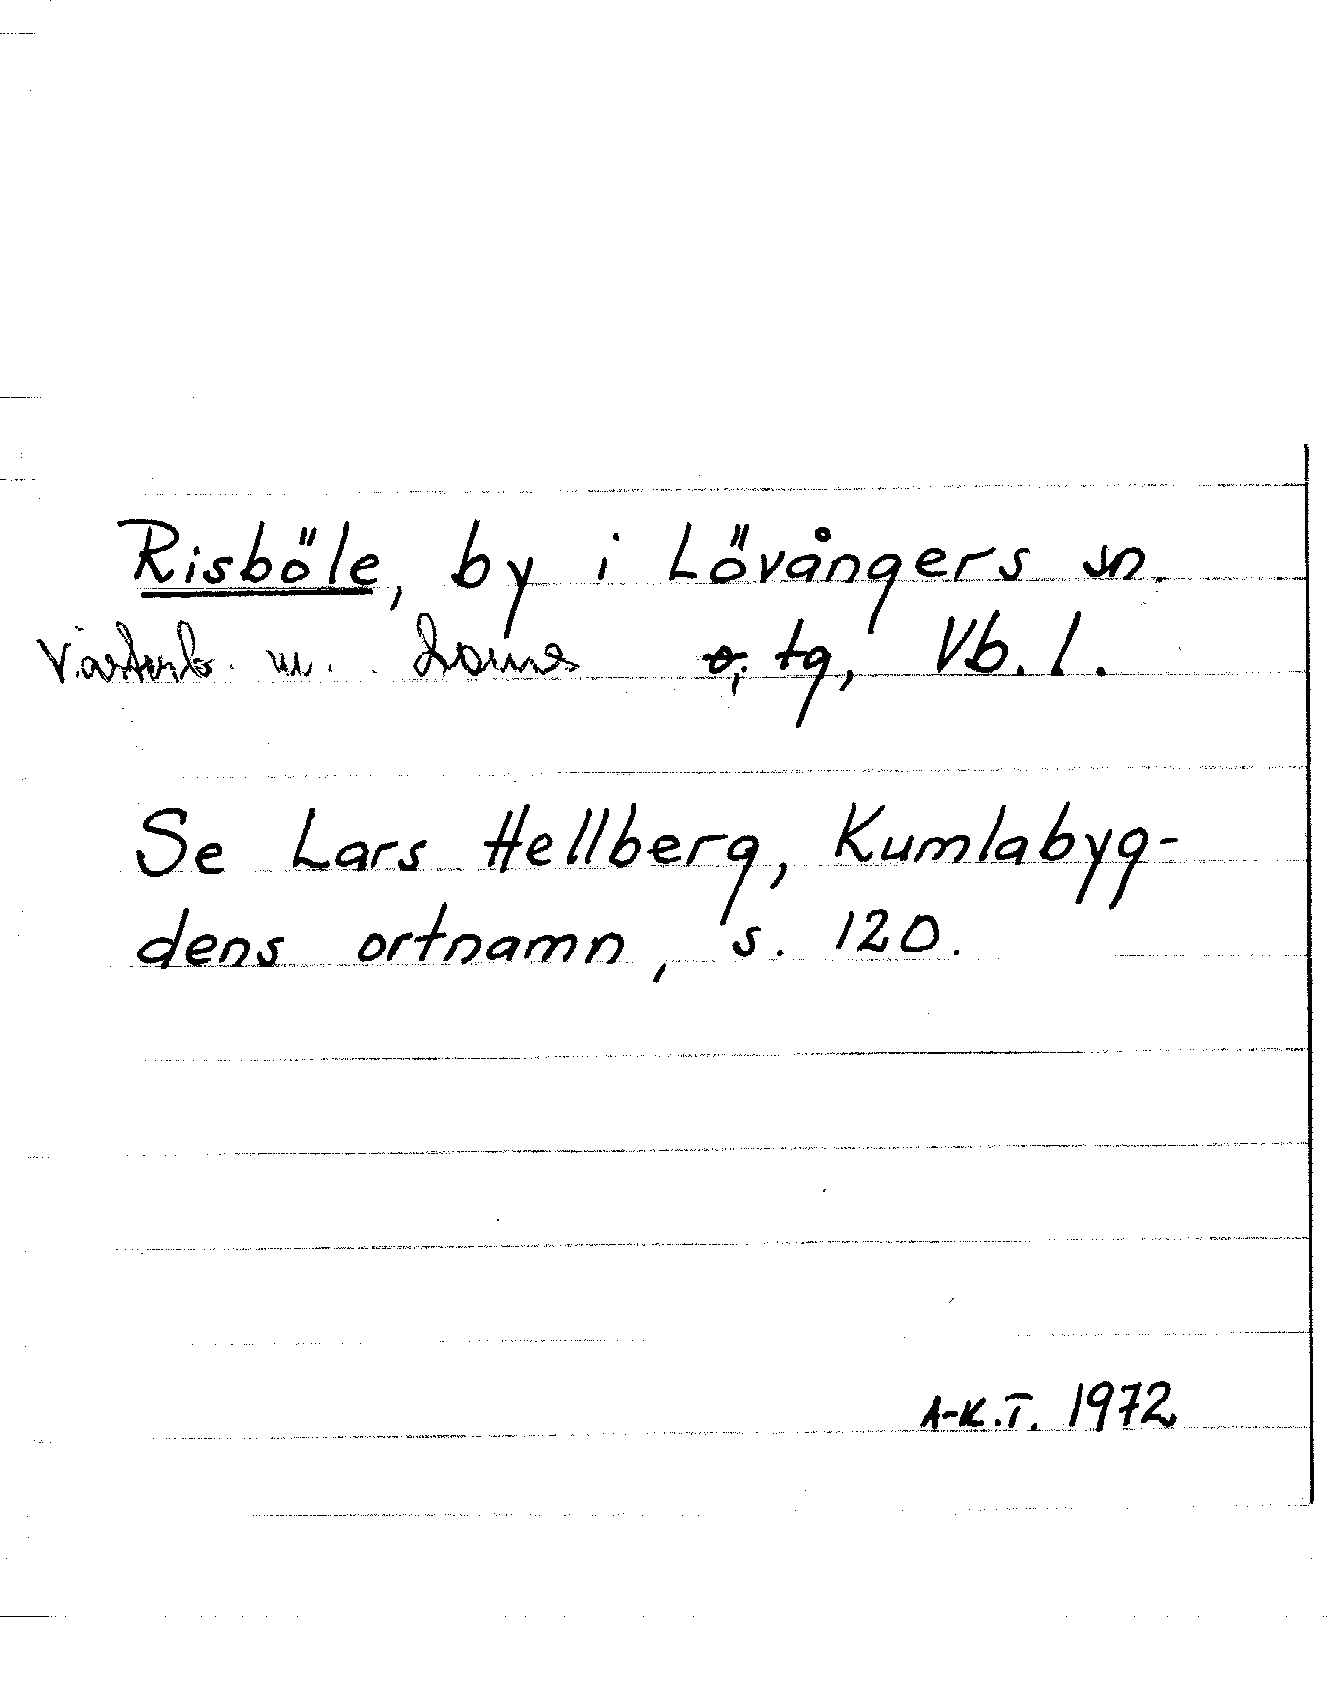 Risböle, by i Lövångers sn.
Västerb. m. o; tg, Vb. l.
Se Lars Hellberg, Kumlabyg-
dens ortnamn, s. 120.
A-K.T. 1972